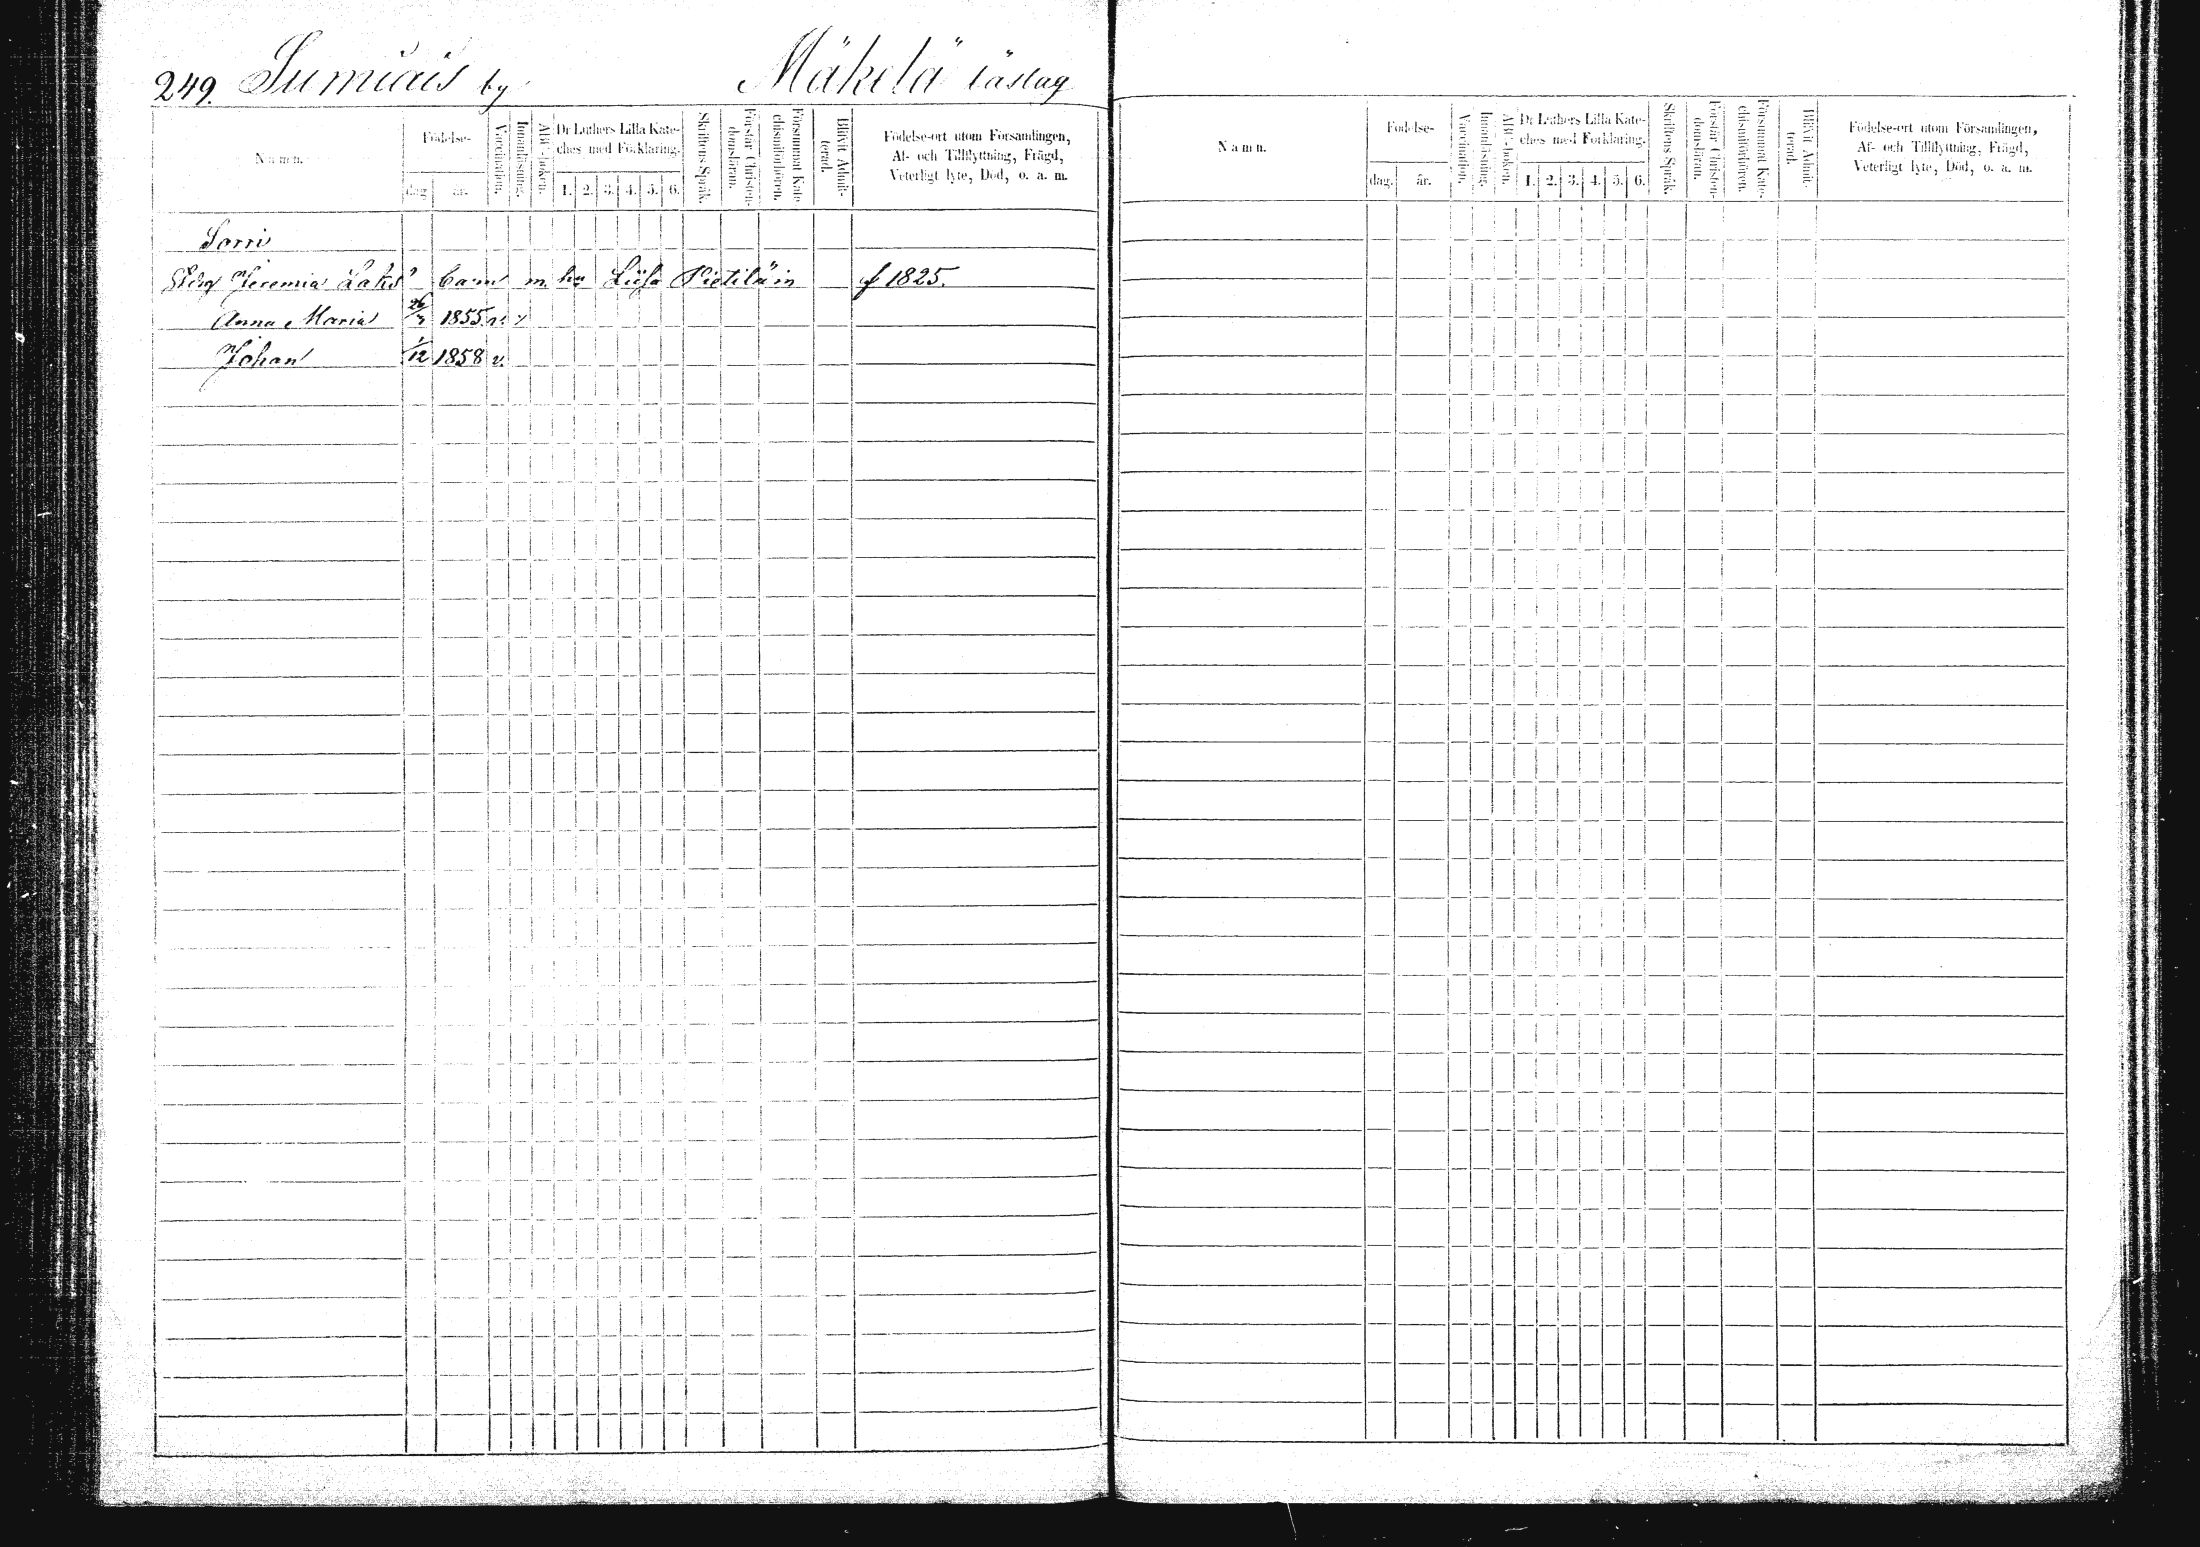 249. Sumiais by Mäkelä läslag
Namn.
Födelse-
dag
år.
Vaccination.
Innanläsning.
ABC-boken.
Dr Luthers Lilla Kate-
ches med Förklaring.
1. 2. 3. 4. 5. 6.
Skriftens Språk.
Förstår Christen-
domsläran.
Försummat Kate-
chismiförhören.
Blifvit Admit-
terad.
Födelse-ort utom Församlingen,
Af- och Tillflyttning, Frägd,
Veterligt lyte, Död, o. a. m.
Sorri
Jeremia Laks barn m. hu Liisa Pietiläin f 1825.
Anna Maria 1855 v.
Johan 1/12 1858 v.
Namn.
Födelse-
dag.
år.
Vaccination.
Innanläsning.
ABC-boken.
Dr Luthers Lilla Kate-
ches med Förklaring.
1. 2. 3. 4. 5. 6.
Skriftens Språk.
Förstår Christen-
domsläran.
Försummat Kate-
chismiförhören.
Blifvit Admit-
terad.
Födelse-ort utom Församlingen,
Af- och Tillflyttning, Frägd,
Veterligt lyte, Död, o. a. m.